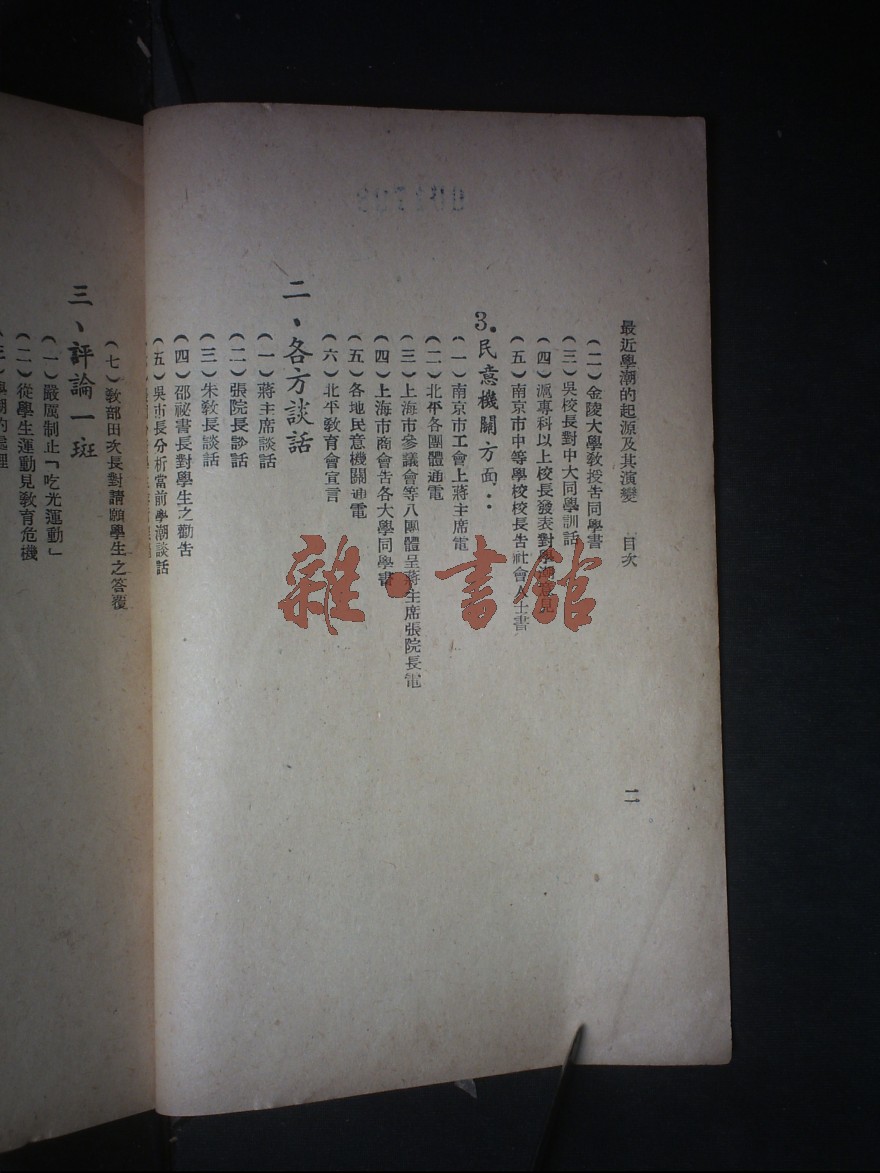 最近學潮的起源及其演變　目次
二
（二）金陵大學教授告同學書
（三）吳校長對中大同學訓話
（四）滬專科以上校長發表對學潮意見
（五）南京市中等學校校長告社會人士書
3.民意機關方面：
（一）南京市工會上蔣主席電
（二）北平各團體通電
（三）上海市參議會等八團體呈蔣主席張院長電
（四）上海市商會告各大學同學書
（五）各地民意機關通電
（六）北平教育會宣言
二、各方談話
（一）蔣主席談話
（二）張院長談話
（三）朱教長談話
（四）邵祕書長對學生之勸告
（五）吳市長分析當前學潮談話
（七）教部田次長對請願學生之答覆
三、評論一斑
（一）嚴厲制止「吃光運動」
（二）從學生運動見教育危機
（三）學潮的處理
雜·書館